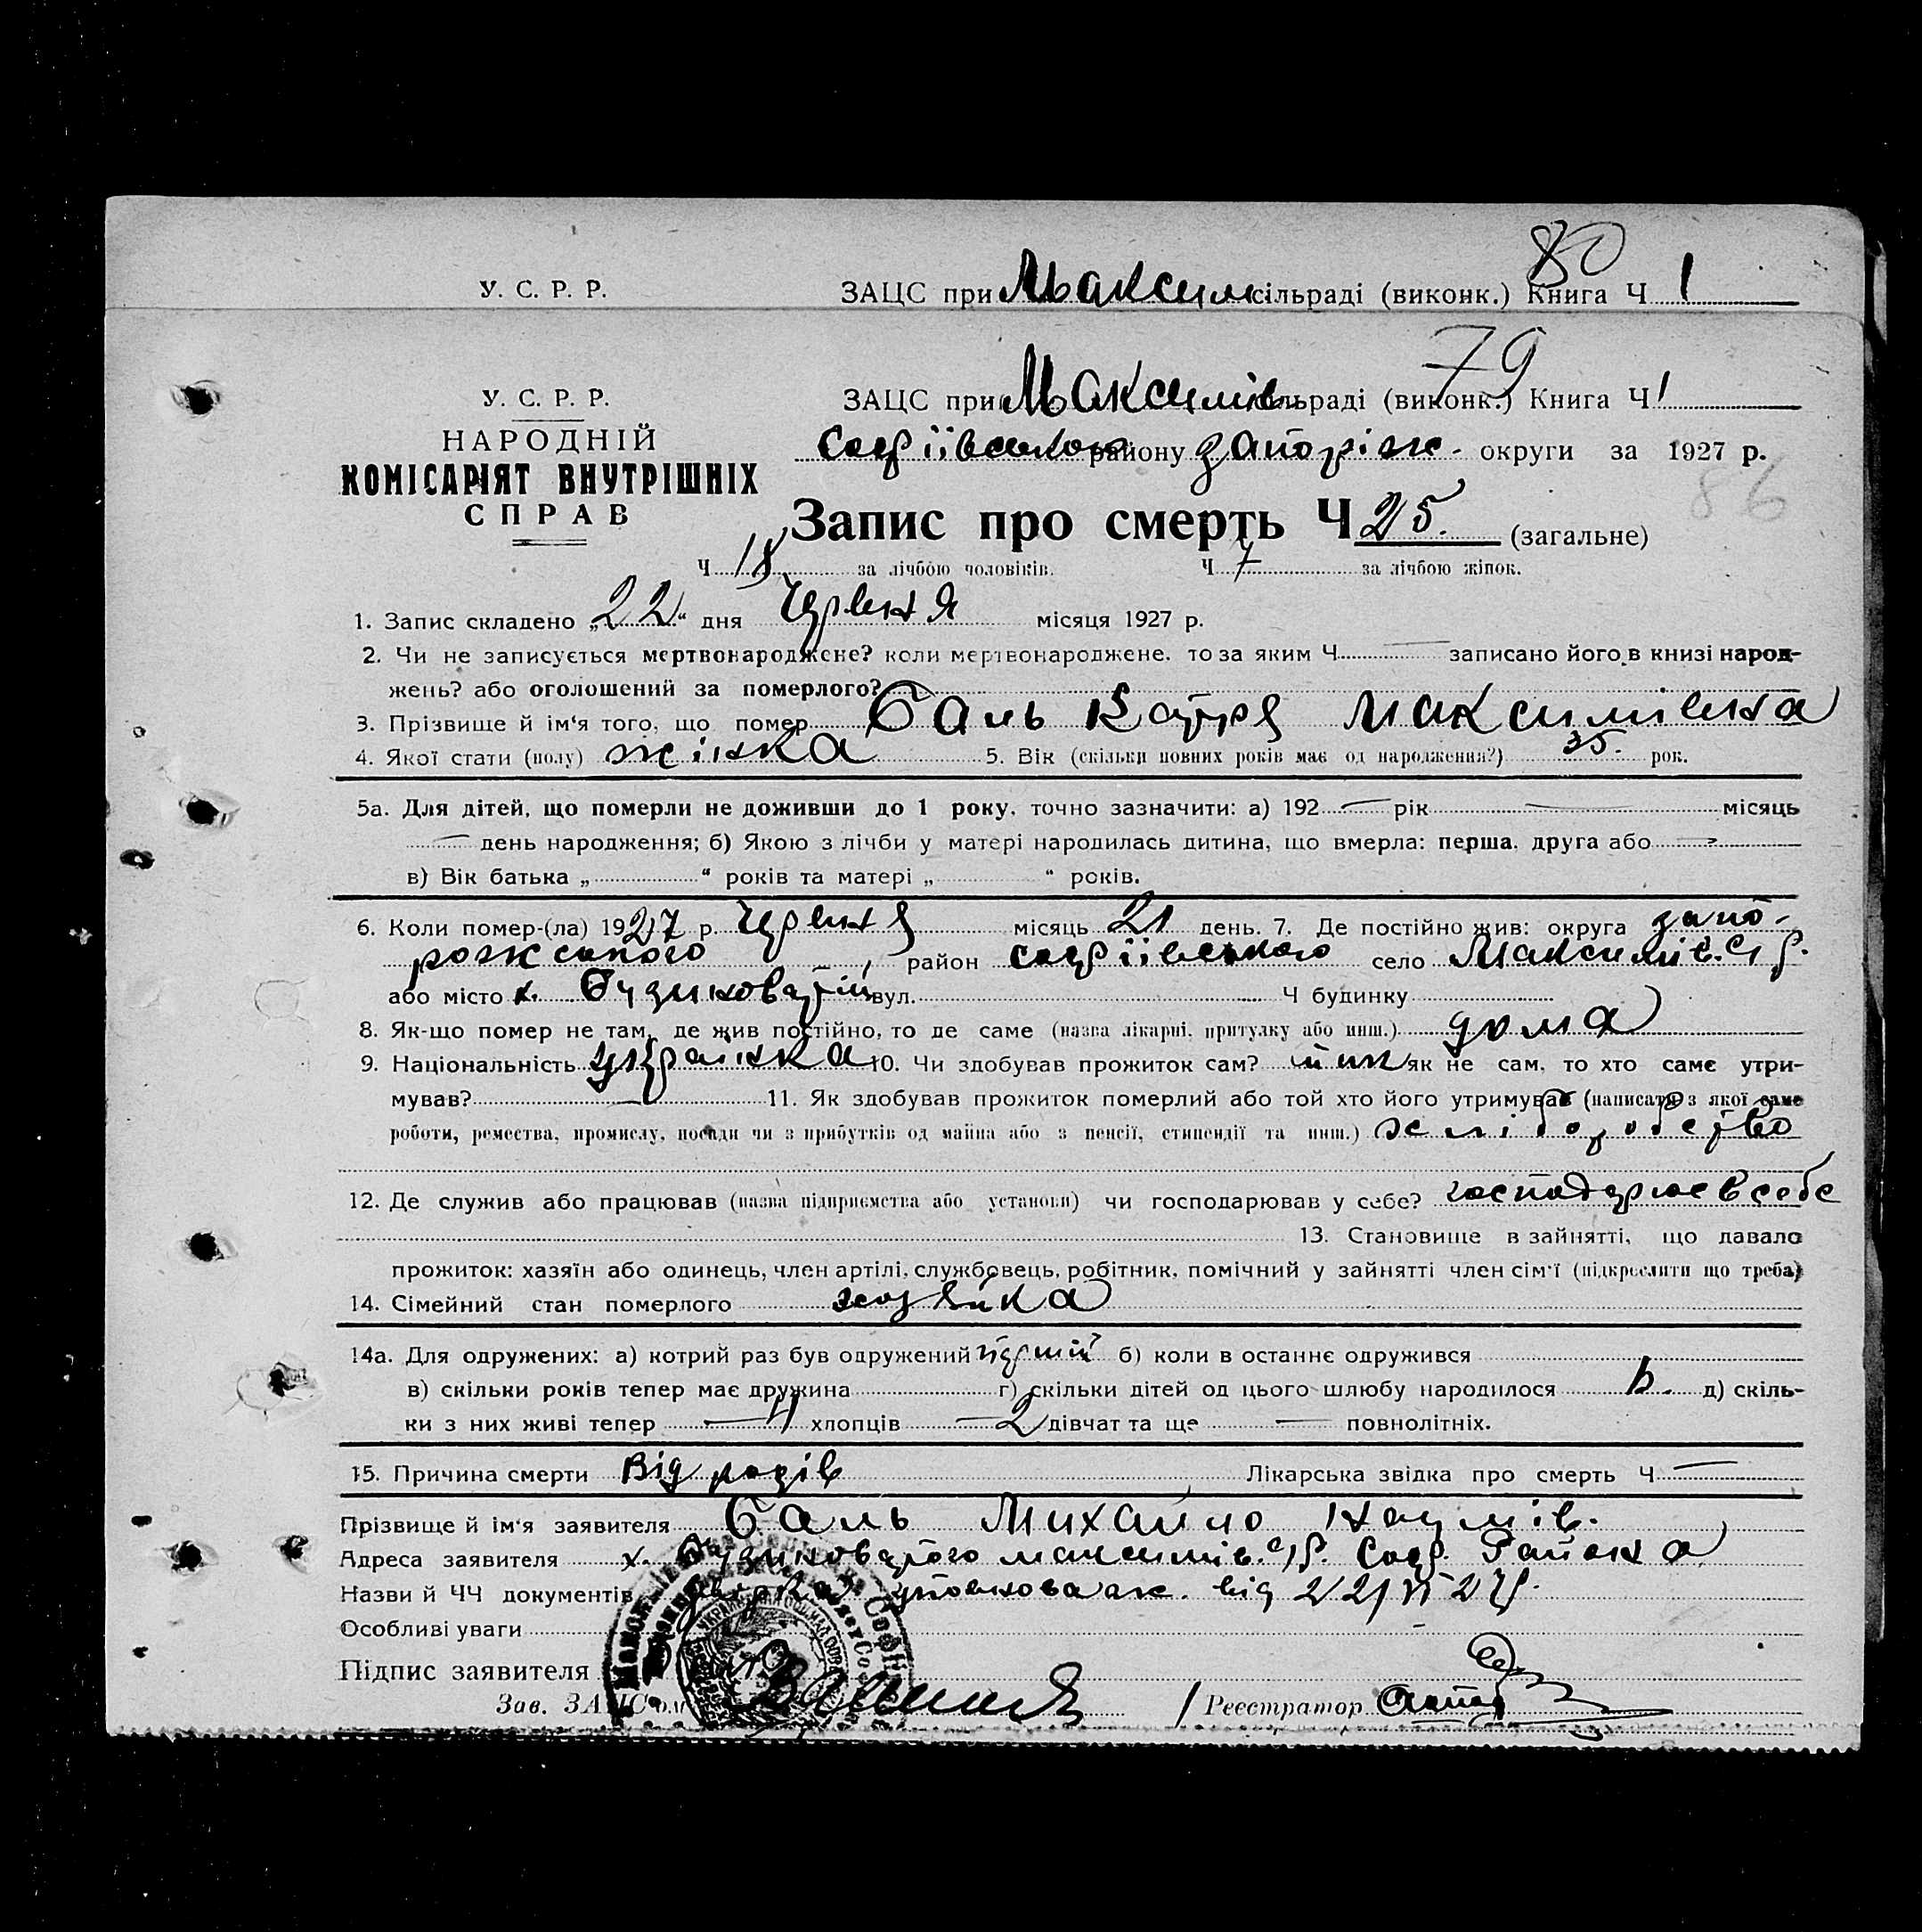 80
У. С. Р. Р. ЗАЦС при Максим. сільраді (виконк.) Книга Ч 1
79
У. С. Р. Р. ЗАЦС при Максимів сільраді (виконк.) Книга Ч 1
НАРОДНІЙ
Софіївського району Запоріж. округи за 1927 р.
КОМІСАРІЯТ ВНУТРІШНІХ
СПРАВ
86
Запис про смерть Ч 25. (загальне)
Ч 18 за лічбою чоловіків. Ч 7 за лічбою жінок.
1. Запис складено „22" дня Червня місяця 1927 р.
2. Чи не записується мертвонароджене? коли мертвонароджене. то за яким Ч — записано його в книзі народ-
жень? або оголошений за померлого?
3. Прізвище й ім'я того, що помер Баль Катря Максимівна
4. Якої стати (полу) жінка 5. Вік (скільки повних років має од народження?) 35. рок.
5а. Для дітей, що померли не доживши до 1 року, точно зазначити: а) 192 — рік — місяць
— день народження; б) Якою з лічби у матері народилась дитина, що вмерла: перша, друга або —
в) Вік батька „ " років та матері „ " років.
6. Коли помер-(ла) 1927 р. Червня місяць 21 день. 7. Де постійно жив: округа Запо-
рожського район Софіївського село Максимів. с/р.
або місто х. вул. Ч будинку
8. Як-що помер не там, де жив постійно, то де саме (назва лікарні, притулку або инш.) дома
9. Національність українка 10. Чи здобував прожиток сам? як не сам, то хто саме утри-
мував? — 11. Як здобував прожиток померлий або той хто його утримував (написати з якої саме
роботи, ремества, промислу, посади чи з прибутків од майна або з пенсії, стипендії та инш.) хліборобство
12. Де служив або працював (назва підприємства або установи) чи господарював у себе? господарює в себе
13. Становище в зайнятті, що давало
прожиток: хазяїн або одинець, член артілі, службовець, робітник, помічний у зайнятті член сім'ї (підкреслити що треба)
14. Сімейний стан померлого хозяйка
14а. Для одружених: а) котрий раз був одружений перший б) коли в останнє одружився
в) скільки років тепер має дружина г) скільки дітей од цього шлюбу народилося 6. д) скіль-
ки з них живі тепер — 4 хлопців — 2 дівчат та ще — повнолітніх.
15. Причина смерти Від родів Лікарська звідка про смерть Ч —
Прізвище й ім'я заявителя Баль Михайло Наумів.
Адреса заявителя х. Максимів. с/р. Соф. Района
Назви й ЧЧ документів від 22/VI 27р.
Особливі уваги
Підпис заявителя
Зав. ЗАЦС'ом Реєстратор